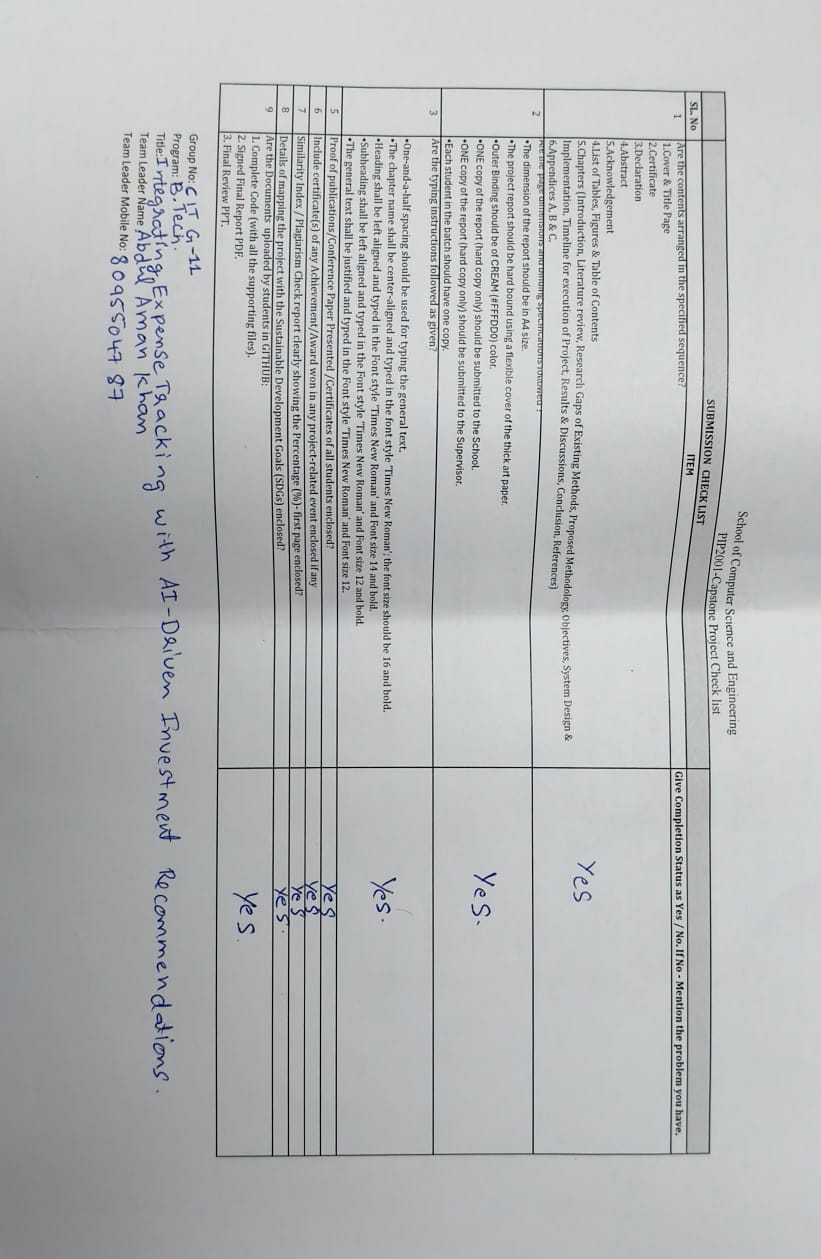 School of Computer Science and Engineering
PIP2001-Capstone Project Check list
SUBMISSION CHECK LIST
SL. No ITEM Give Completion Status as Yes / No. If No - Mention the problem you have.
1 Are the contents arranged in the specified sequence?
1.Cover & Title Page
2.Certificate
3.Declaration
4.Abstract
5.Acknowledgement
4.List of Tables, Figures & Table of Contents
5.Chapters (Introduction, Literature review, Research Gaps of Existing Methods, Proposed Methodology, Objectives, System Design &
Implementation, Timeline for execution of Project, Results & Discussions, Conclusion, References)
6.Appendices A, B & C.
Yes
2 Are the page dimensions and binding specifications followed ?
•The dimension of the report should be in A4 size.
•The project report should be hard bound using a flexible cover of the thick art paper.
•Outer Binding should be of CREAM (#FFFDD0) color.
•ONE copy of the report (hard copy only) should be submitted to the School.
•ONE copy of the report (hard copy only) should be submitted to the Supervisor.
•Each student in the batch should have one copy.
Yes.
3 Are the typing instructions followed as given?
•One-and-a-half spacing should be used for typing the general text.
•The chapter name shall be center-aligned and typed in the font style 'Times New Roman'; the font size should be 16 and bold.
•Heading shall be left aligned and typed in the Font style 'Times New Roman' and Font size 14 and bold.
•Subheading shall be left aligned and typed in the Font style 'Times New Roman' and Font size 12 and bold.
•The general text shall be justified and typed in the Font style 'Times New Roman' and Font size 12.
Yes.
5 Proof of publications/Conference Paper Presented /Certificates of all students enclosed? Yes
6 Include certificate(s) of any Achievement/Award won in any project-related event enclosed if any Yes
7 Similarity Index / Plagiarism Check report clearly showing the Percentage (%)- first page enclosed? Yes
8 Details of mapping the project with the Sustainable Development Goals (SDGs) enclosed? Yes.
9 Are the Documents uploaded by students in GITHUB:
1. Complete Code (with all the supporting files).
2. Signed Final Report PDF.
3. Final Review PPT.
Yes.
Group No: CIT G-11
Program: B.Tech.
Title: Integrating Expense Tracking with AI-Driven Investment Recommendations.
Team Leader Name: Abdul Aman Khan
Team Leader Mobile No: 8095504787